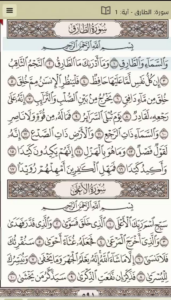 سورة: الطارق - آية: 1
سُورَةُ الطَّارِقِ
بِسْمِ اللَّهِ الرَّحْمَٰنِ الرَّحِيمِ
وَالسَّمَاءِ وَالطَّارِقِ ١ وَمَا أَدْرَىٰكَ مَا الطَّارِقُ ٢ النَّجْمُ الثَّاقِبُ
٣ إِن كُلُّ نَفْسٍ لَّمَّا عَلَيْهَا حَافِظٌ ٤ فَلْيَنظُرِ الْإِنسَٰنُ مِمَّ خُلِقَ ٥
خُلِقَ مِن مَّاءٍ دَافِقٍ ٦ يَخْرُجُ مِن بَيْنِ الصُّلْبِ وَالتَّرَائِبِ ٧ إِنَّهُ عَلَىٰ
رَجْعِهِ لَقَادِرٌ ٨ يَوْمَ تُبْلَى السَّرَائِرُ ٩ فَمَا لَهُ مِن قُوَّةٍ وَلَا نَاصِرٍ
١٠ وَالسَّمَاءِ ذَاتِ الرَّجْعِ ١١ وَالْأَرْضِ ذَاتِ الصَّدْعِ ١٢ إِنَّهُ
لَقَوْلٌ فَصْلٌ ١٣ وَمَا هُوَ بِالْهَزْلِ ١٤ إِنَّهُمْ يَكِيدُونَ كَيْدًا ١٥
وَأَكِيدُ كَيْدًا ١٦ فَمَهِّلِ الْكَٰفِرِينَ أَمْهِلْهُمْ رُوَيْدًا ١٧
سُورَةُ الْأَعْلَىٰ
بِسْمِ اللَّهِ الرَّحْمَٰنِ الرَّحِيمِ
سَبِّحِ اسْمَ رَبِّكَ الْأَعْلَى ١ الَّذِي خَلَقَ فَسَوَّىٰ ٢ وَالَّذِي قَدَّرَ فَهَدَىٰ
٣ وَالَّذِي أَخْرَجَ الْمَرْعَىٰ ٤ فَجَعَلَهُ غُثَاءً أَحْوَىٰ ٥ سَنُقْرِئُكَ
فَلَا تَنسَىٰ ٦ إِلَّا مَا شَاءَ اللَّهُ إِنَّهُ يَعْلَمُ الْجَهْرَ وَمَا يَخْفَىٰ ٧ وَنُيَسِّرُكَ
لِلْيُسْرَىٰ ٨ فَذَكِّرْ إِن نَّفَعَتِ الذِّكْرَىٰ ٩ سَيَذَّكَّرُ مَن يَخْشَىٰ ١٠
٥٩١